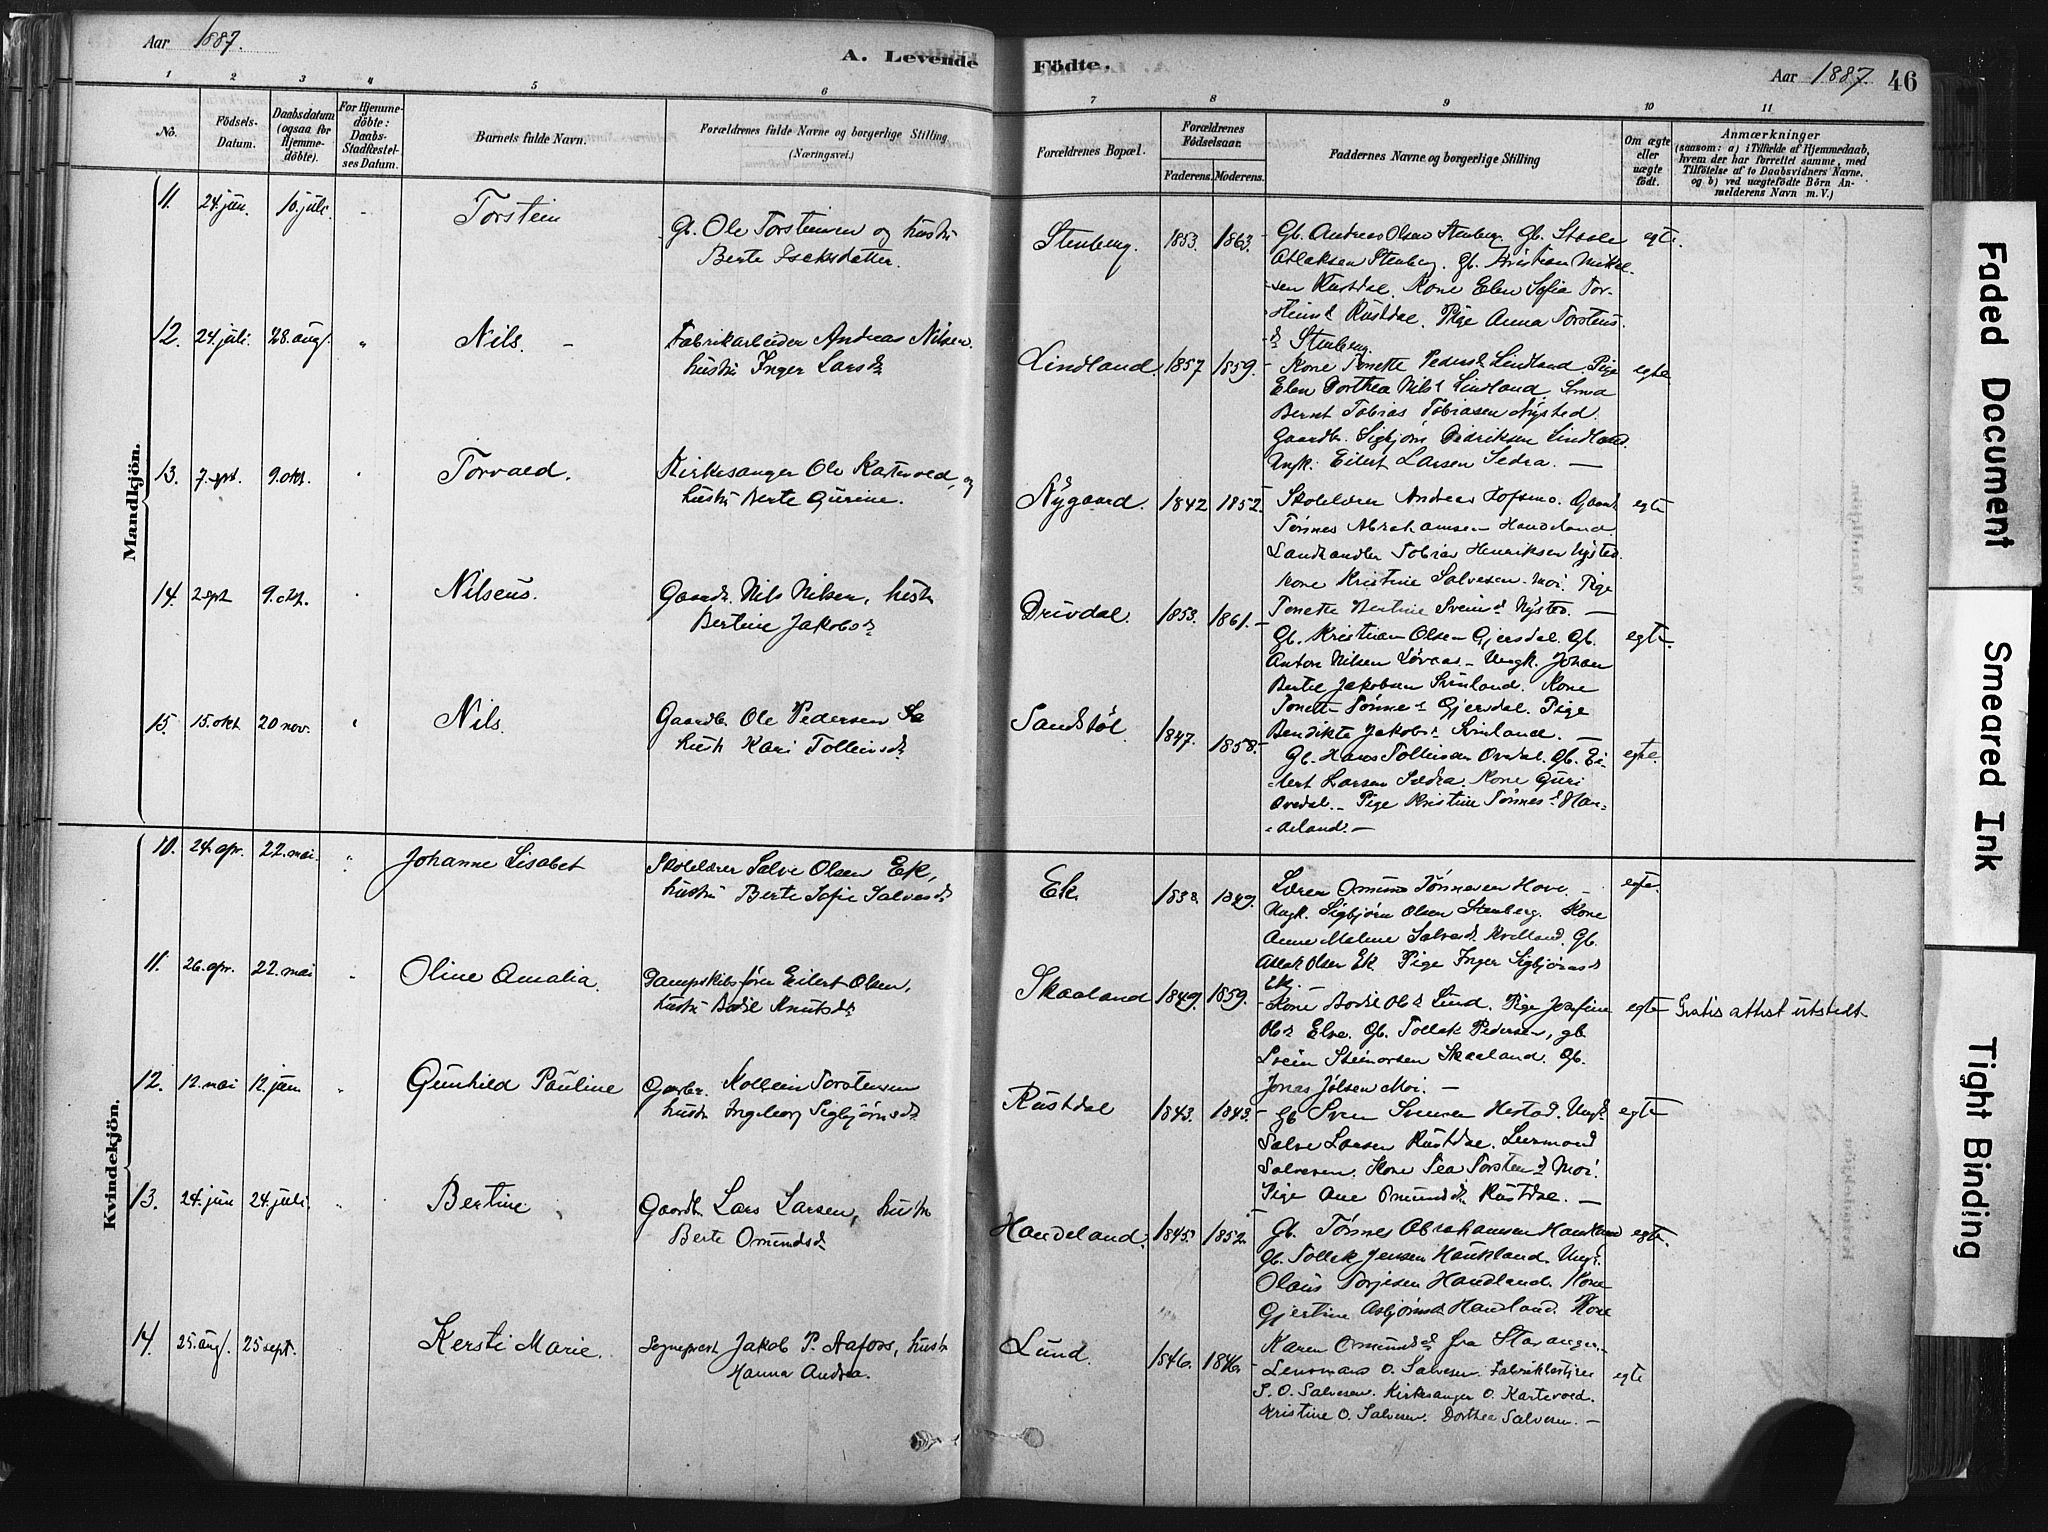 Aar 1887.
A. Levende Födte.
Aar 1887. 46
1 2 3 4 5 6 7 8 9 10 11
No.
Födsels-Datum.
Daabsdatum (ogsaa for Hjemmedöbte).
For Hjemmedöbte: Daabs-Stadfæstelses Datum.
Barnets fulde Navn.
Forældrenes fulde Navne og borgerlige Stilling (Næringsvei.)
Forældrenes Bopæl.
Forældrenes Födselsaar.
Faderens. Moderens.
Faddernes Navne og borgerlige Stilling
Om ægte eller uægte födt.
Anmærkninger
(saasom: a) i Tilfælde af Hjemmedaab, hvem der har forrettet samme, med Tilföielse af to Daabsvidners Navne, og b) ved uægtefödte Börn Anmelderens Navn m. V.)
Mandkjön.
11. 24. jun. 10. juli Torstein
Gb. Ole Torstensen og hustr
Berte Iseksdatter.
Stenberg. 1853. 1863.
Gb. Andreas Olsen Stenberg. Gb. Staale
Atlaksen Stenberg. Gb. Kristian Mikal-
sen Rustdal. Kone Elen Sofia Tor-
steinsd Rustdal. Pige Anna Torstens-
d Stenberg.
egte.
12. 24. juli. 28. aug. " Nils.
Fabrikarbeider Andreas Nilsen.
hustr Inger Larsd.
Lindland. 1857 1859.
Kone Tonette Pedersd Lindland. Pige
Elen Dorthea Nilsd Lindland. Smed
Bernt Tobias Tobiasen Nysted.
Gaardb. Sigbjørn Didriksen Lindland.
Ungk. Eilert Larsen Sedra. —
egte
13. 7. spt. 9. okt. Torvald.
Kirkesanger Ole Kartevold, og
hustr Berte Gurine.
Nygaard. 1842 1852.
Skolelærer Andreas Hofsmo. Gaardb.
Tönnes Abrahamsen Handeland
Landhandler Tobias Henriksen Nysted.
Kone Kristine Salvesen. Moi. Pige
Tonette Bertine Sveinsd Nysted —
egte
14. 2 spt 9. okt. Nilseus.
Gaardb. Nils Nilsen, hustr
Bertine Jakobsd.
Drivdal. 1853. 1861.
Gb. Kristian Olsen Gjersdal. Gb.
Anton Nilsen Løvaas. Ungk. Johan
Bertel Jakobsen Svinland. Kone
Tonette Tønnesd Gjersdal. Pige
Bendikte Jakobsd Svinland. —
egte.
15. 15. okt 20 nov. Nils.
Gaardb. Ole Pedersen
hustr Kari Tolleivsd.
Sandstøl. 1847. 1858.
Gb. Hans Tollivsen Ovedal. Gb. Ei-
lert Larsen Sædra. Kone Guri
Ovedal. Pige Kristine Tønnesd Han-
deland. —
egte.
Kvindekjön.
10. 24. apr. 22. mai. " Johanne Lisabet
Skolelærer Salve Olsen Ek,
hustr Berte Sofie Salvesd.
Ek. 1849.
Lærer Omund Tønnesen Hove. —
Ungk. Sigbjørn Olsen Stenberg. Kone
Anne Malene Salvesd. Kvelland. Gb.
Atlak Olsen Ek. Pige Inger Sigbjørnsd
Ek. —
egte.
11. 26. apr. 22. mai Oline Amalia.
Dampskibsfører Eilert Olsen,
hustr Bodil Knutsd.
Skaaland 1849. 1859.
Kone Bodil Olsd Lund. Pige Josefine
Olsd Elve. Gb. Tollak Pedersen, gb
Svein Steinorsen Skaaland. Gb.
Jonas Jølsen Moi. —
egte Gratis attest utstedt
12. 12. mai 12. jun Gunhild Pauline
Gaardbr. Kolbein Torstensen
hustr Ingeborg Sigbjørnsd.
Rustdal 1843. 1843.
Gb. Sven Svensen Hestad. Ungk.
Salve Larsen Rustdal. Lensmand
Salvesen. Kone Tea Torstensd Moi.
Pige Ane Omundsd. Rustdal. —
egte
13. 24. jun 24. juli. Bertine
Gaardb Lars Larsen, hustr
Berte Omundsd.
Handeland. 1845. 1852.
Gb. Tönnes Abrahamsen Haukland
Gb. Tollak Jensen Haukland. Ungk.
Olaus Torjesen Handland. Kone
Gjertine Asbjørnsd Handland. Kone
Karen Omundsd fra Stavanger.
egte.
14. 25. aug. 25 sept. Kersti Marie.
Sogneprest Jakob P. Aafoss, hustr
Hanna Andrea.
Lund. 1846. 1846.
Lensmand O. Salvesen. Fabrikbestyrer
S. O. Salvesen. Kirkesanger O. Kartevold.
Kristine O. Salvesen. Dorthea Salvesen. —
egte
Faded Document
Smeared Ink
Tight Binding